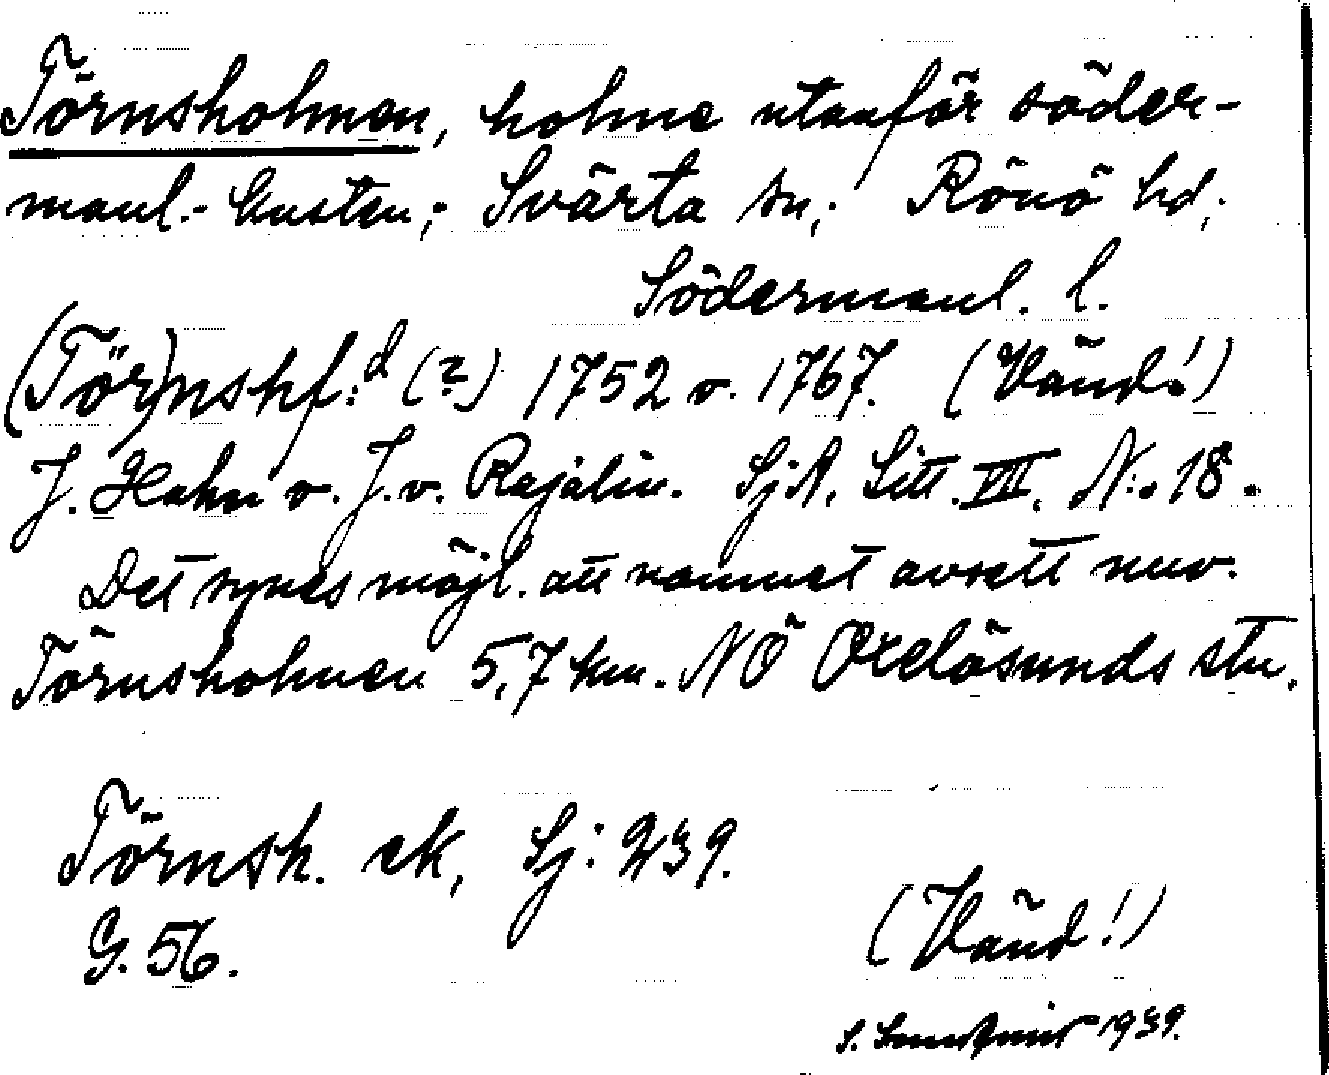 Törnsholmen, holme utanför söder-
manl.- kusten; Svärta sn; Rönö hd;
Södermanl. l.
(Tör)nshf:d (?) 1752 o. 1767. (Vänd!)
J. Hahn o. J. v. Rajalin. SjA. Litt. VII. N:o 18.
Det synes möjl. att namnet avsett nuv.
Törnsholmen 5,7 km. NÖ Oxelösunds stn.
Törnsh. ek, Sj: 239.
G. 56.
(Vänd!)
S. 1939.